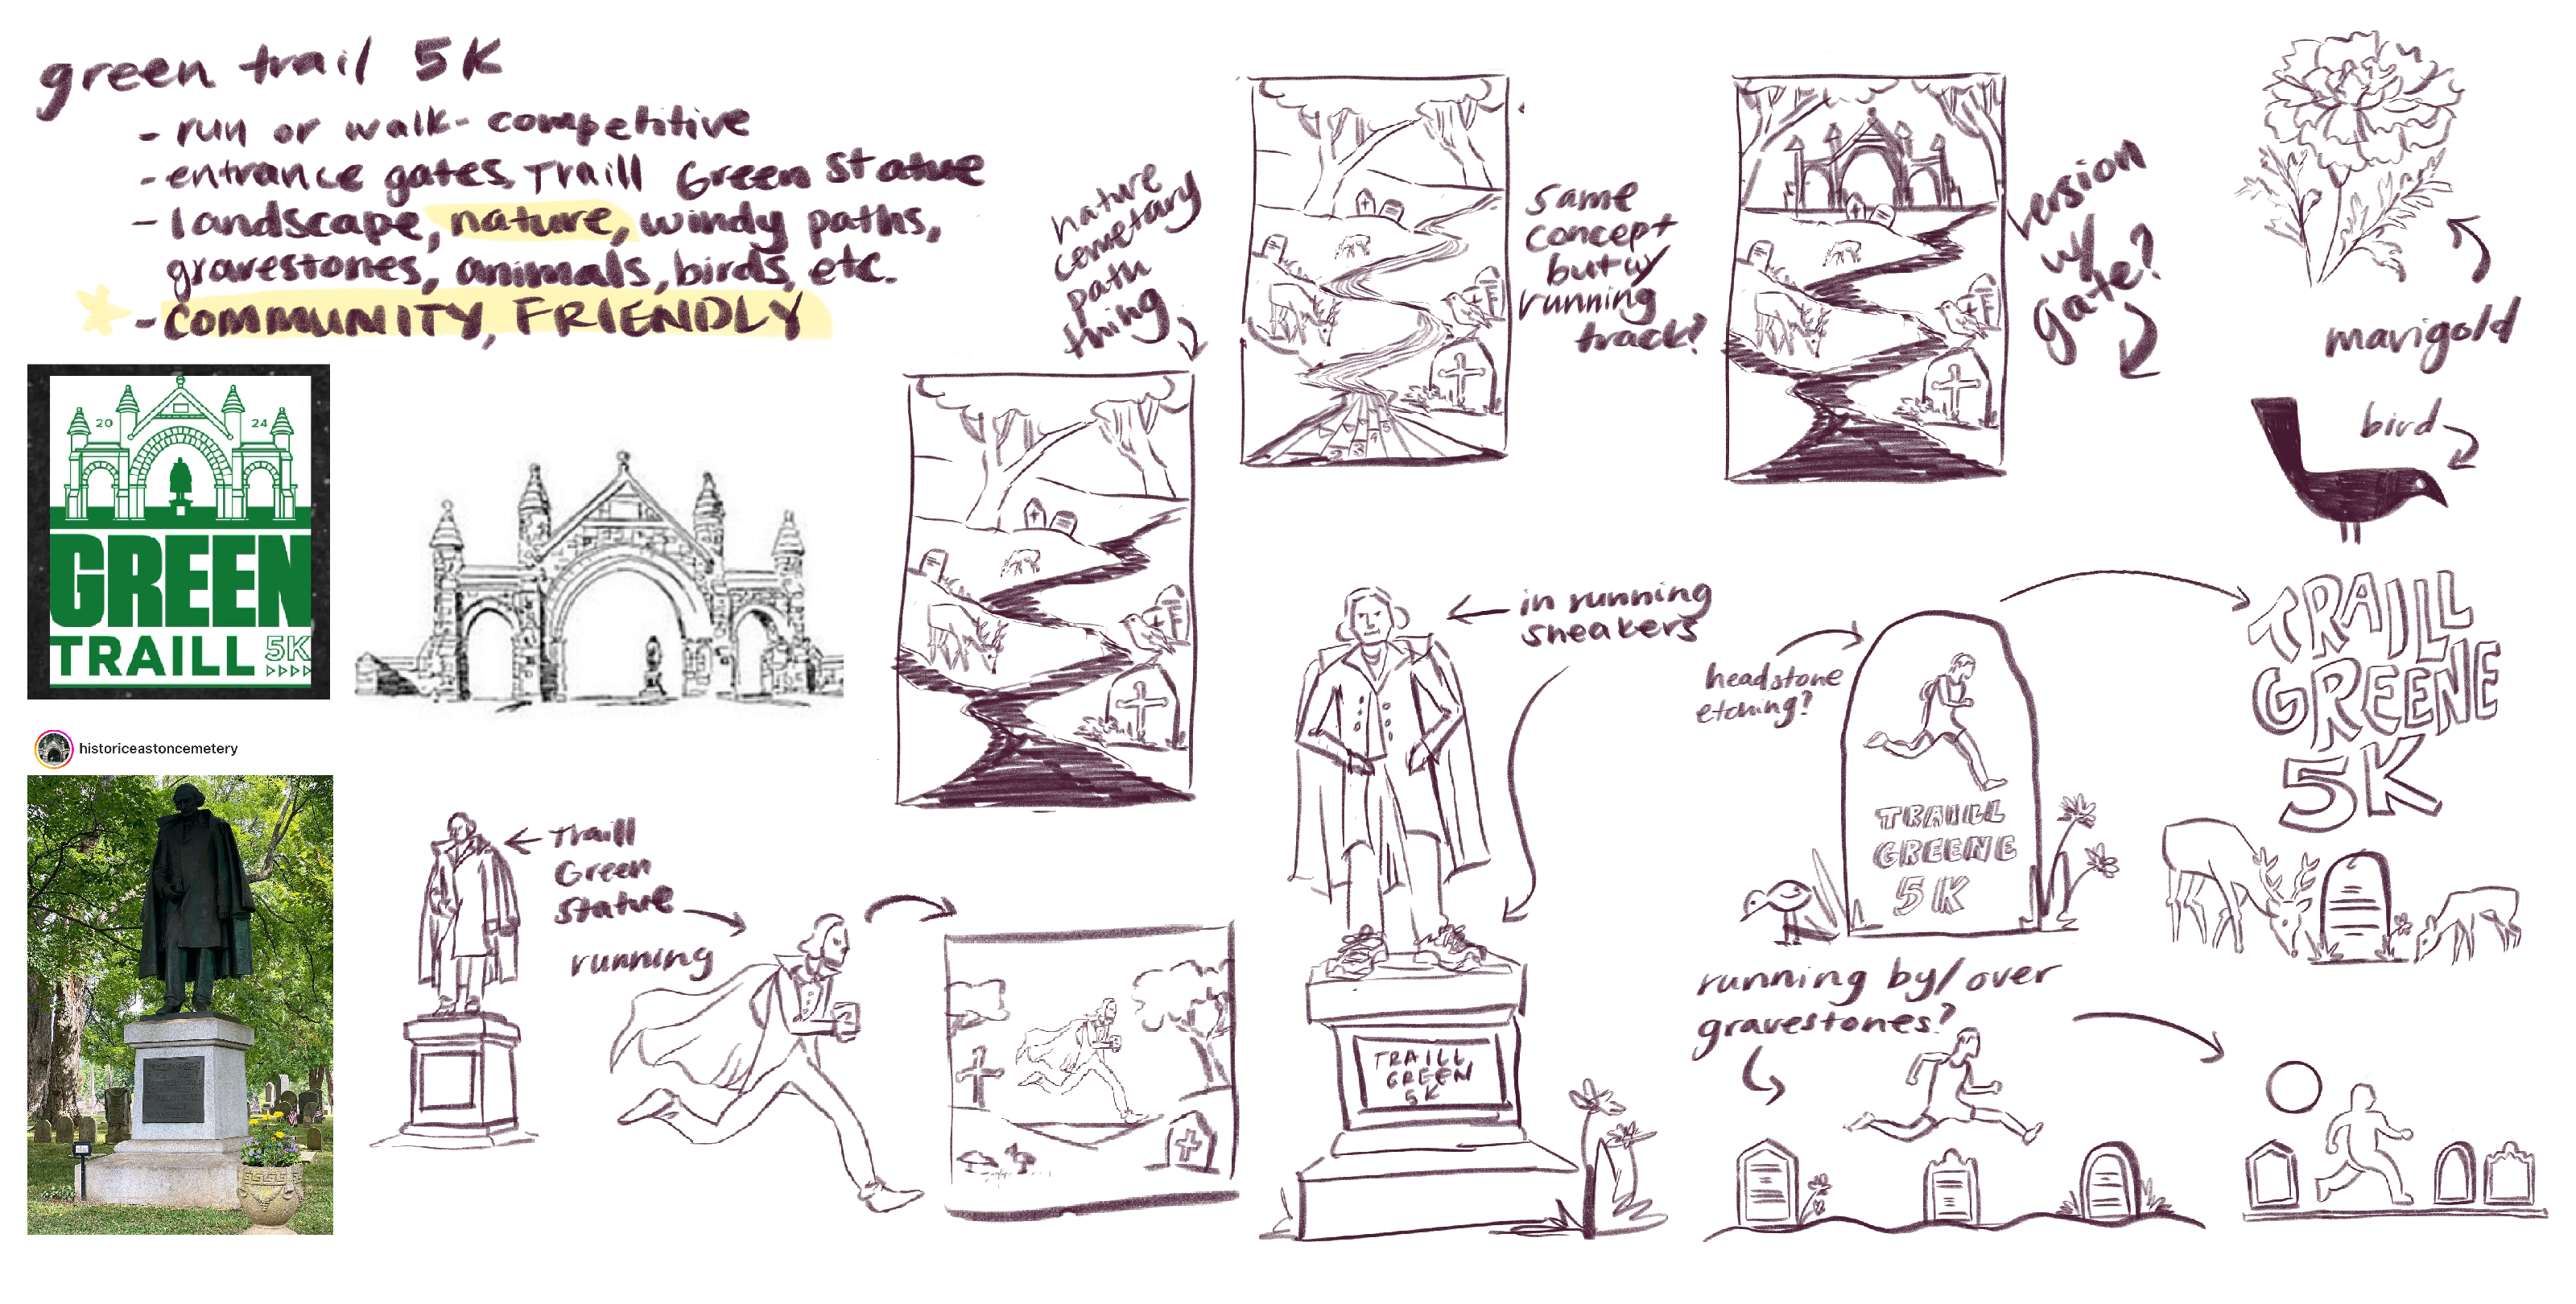 green trail 5K
- run or walk- competitive
- entrance gates, Traill Green Statue
- landscape, nature, windy paths,
gravestones, animals, birds, etc.
- COMMUNITY, FRIENDLY
20 24
GREEN
TRAILL 5K
historiceastoncemetery
nature
cemetary
path
thing
same
concept
but w/
running
track?
version
w/
gate?
marigold
bird
Traill
Green
Statue
running
in running
sneakers
TRAILL
GREEN
5K
headstone
etching?
TRAIILL
GREENE
5K
TRAILL
GREENE
5K
running by/over
gravestones?